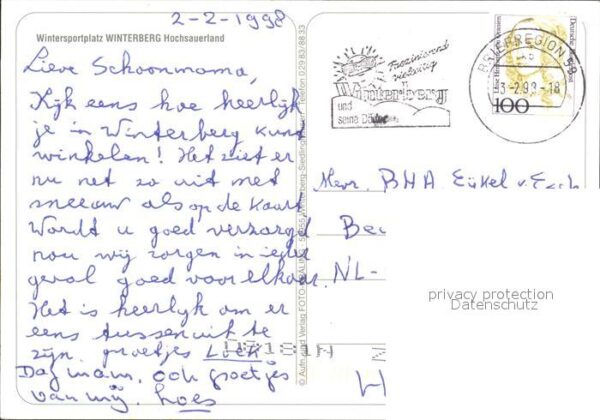 2-2-1998
Wintersportplatz WINTERBERG Hochsauerland
Lieve Schoonmama,
Kijk eens hoe heerlijk
je in Winterberg kunt
winkelen! Het ziet er
nu net zo uit met
sneeuw als op de kaart
Wordt u goed verzorgd
nou wij zorgen in ieder
geval goed voor elkaar.
Het is heerlijk om er
eens tussenuit te
zijn. groetjes Loek
Dag mam, ook groetjes
van mij. Loes
Faszinierend
vielseitig
Winterberg
und
seine Dörfer
BRIEFREGION 59
-3-2.98-18
100
Mevr. BHA
Bee
NL-
H
privacy protection
Datenschutz